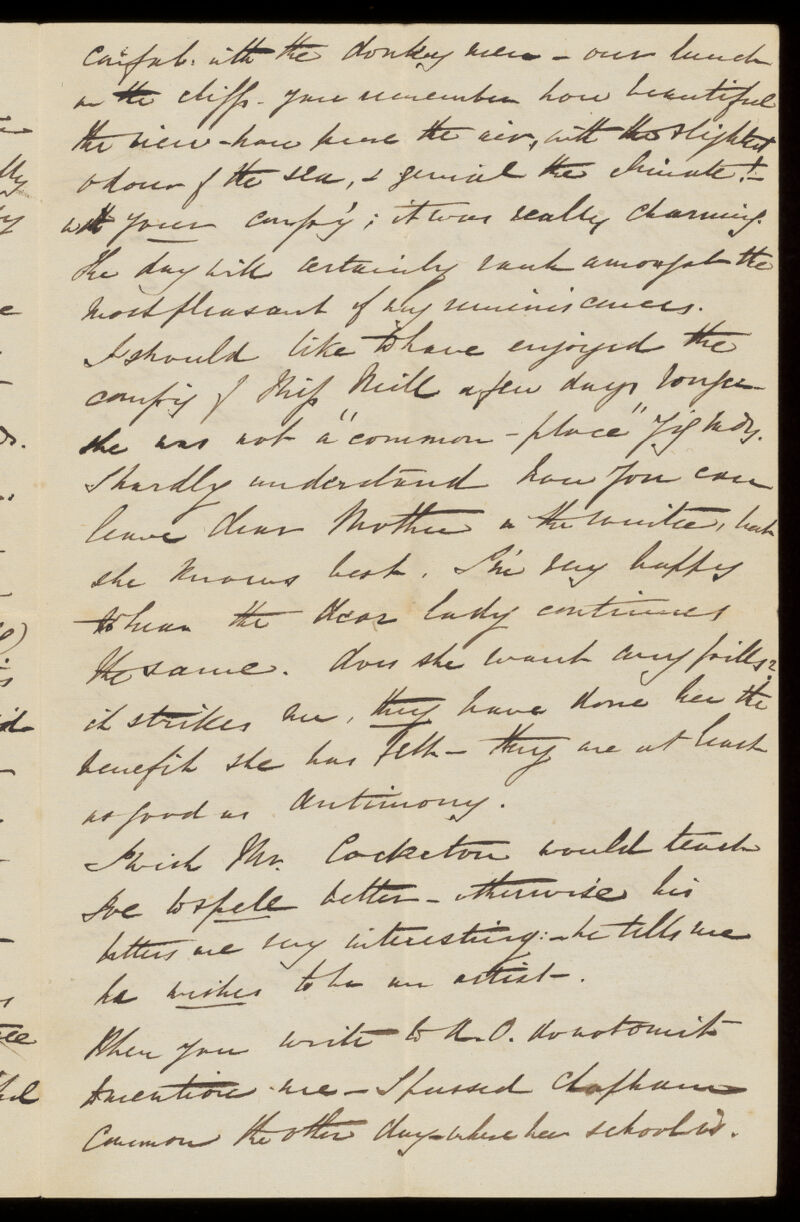 with the donkey men - our lunch
on the cliffs - you remember how beautiful
the view - how pure the air, with the slightest
odour of the sea, & genial the climate! -
with your comp'y; it was really charming.
The day will certainly rank amongst the
most pleasant of my reminiscences.
I should like to have enjoyed the
comp'y of Miss Neill a few days longer
she was not a "common-place"
I hardly understand how you can
leave dear Mother in the winter, but
she knows best. I'm very happy
to hear the dear lady continues
the same. Does she want any pills?
it strikes me, they have done her the
benefit she has felt - they are at least
as good as Antimony.
I wish Mr. Cocketon would teach
Joe to spell better - otherwise his
letters are very interesting: - he tells me
he wishes to be an artist -.
When you write to A.O. do not omit
to mention me - I passed Clapham
Common the other day - where her school is.